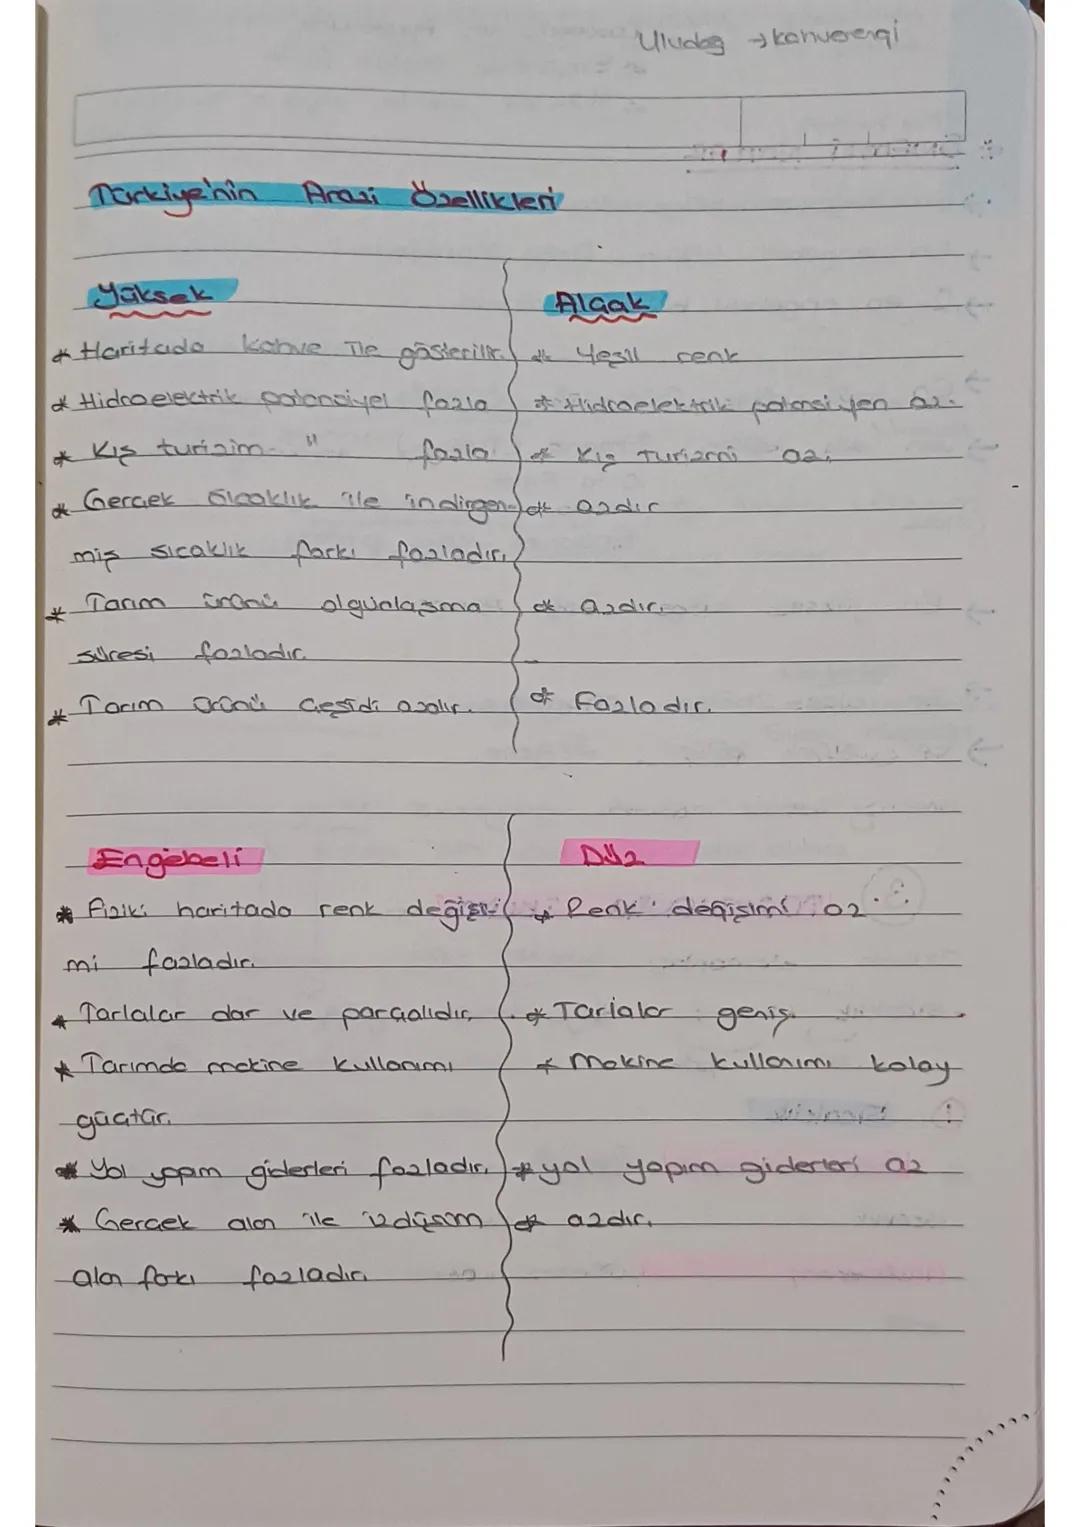 Uludağ → konverengi
Türkiye'nin Arazi Özellikleri
Yüksek
* Haritada kahve ile gösterilir.
* Hidroelektrik potansiyel fazla
* Kış turizim " fazla
* Gerçek sıcaklık ile indirgen-
miş sıcaklık farkı fazladır.
* Tarım ürünü olgunlaşma
süresi fazladır.
* Tarım ürünü çeşidi azalır.
Alçak
* Yeşil renk
* Hidroelektrik potansiyen az.
* Kış Turizmi az.
* azdır
* azdır.
* Fazladır.
Engebeli
* Fiziki haritada renk değişi-
mi fazladır.
* Tarlalar dar ve parçalıdır.
* Tarımda makine kullanımı
güçtür.
* Yol yapım giderleri fazladır.
* Gerçek alan ile izdüşüm
alan farkı fazladır.
Düz
* Renk değişimi az.
* Tarlalar geniş.
* Makine kullanımı kolay
* yol yapım giderleri az
* azdır.